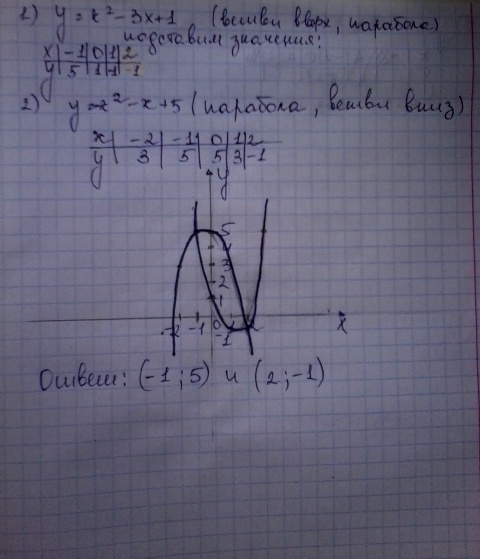 1) y = x² - 3x + 1 (ветви вверх, парабола)
подставим значения:
x | -1 | 0 | 1 | 2
y | 5 | 1 | -1 | -1
2) y = -x² - x + 5 (парабола, ветви вниз)
x | -2 | -1 | 0 | 1 | 2
y | 3 | 5 | 5 | 3 | -1
y
5
4
3
2
1
-2 -1 0 2 x
-1
Ответ: (-1; 5) и (2; -1)